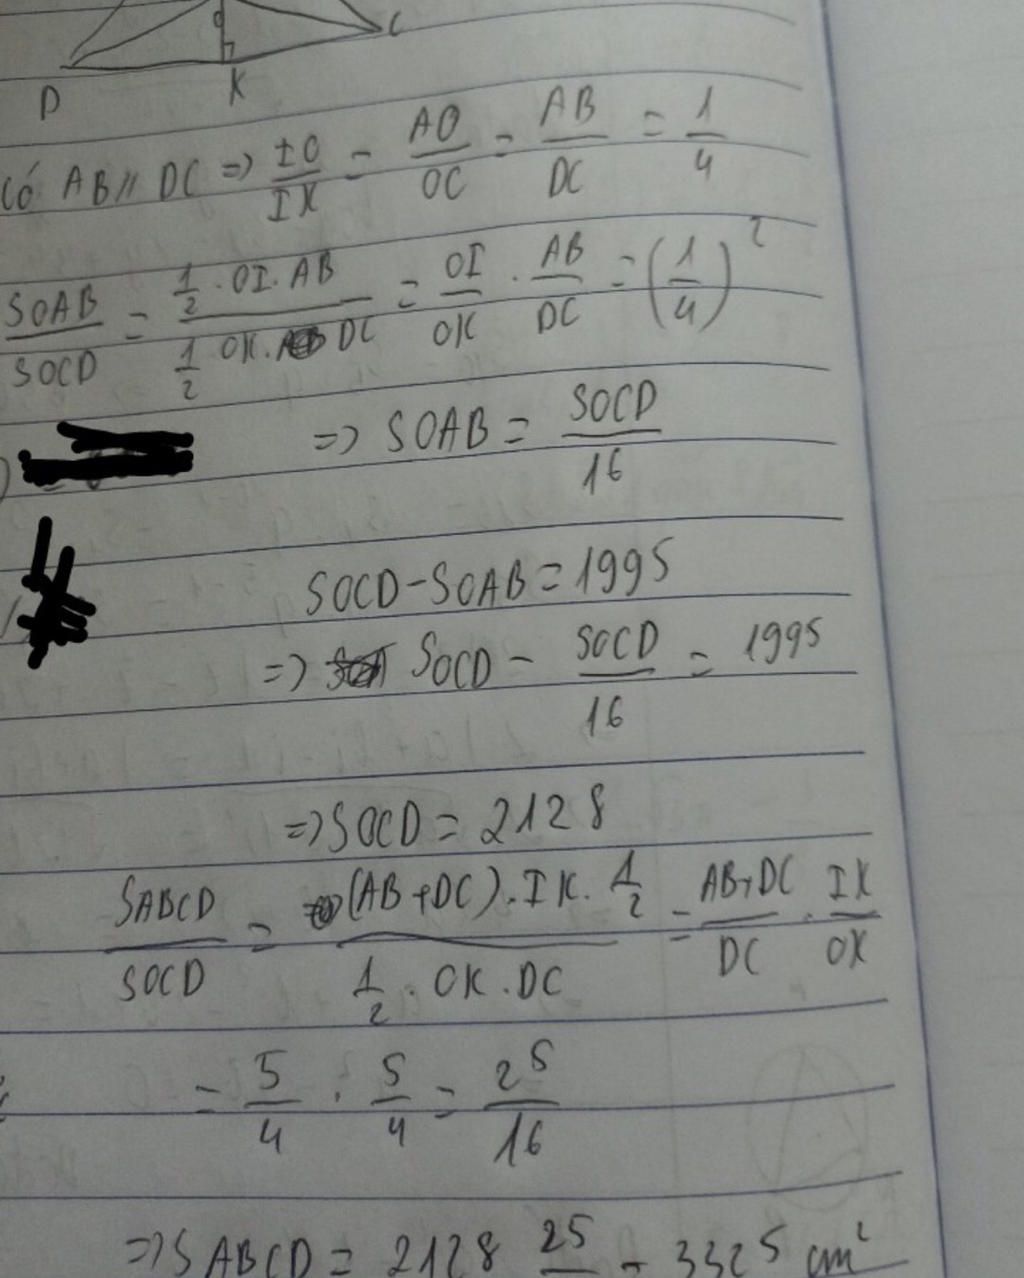 O C
D K
Có AB // DC => IO/IK = AO/OC = AB/DC = 1/4
SOAB/SOCD = (1/2 . OI . AB)/(1/2 OK . DC) = OI/OK . AB/DC = (1/4)²
=> SOAB = SOCD/16
SOCD - SOAB = 1995
=> SOCD - SOCD/16 = 1995
=> SOCD = 2128
SABCD/SOCD = ((AB + DC) . IK . 1/2)/(1/2 . OK . DC) = (AB + DC)/DC . IK/OK
= 5/4 . 5/4 = 25/16
=> SABCD = 2128 25 = 3325 cm²